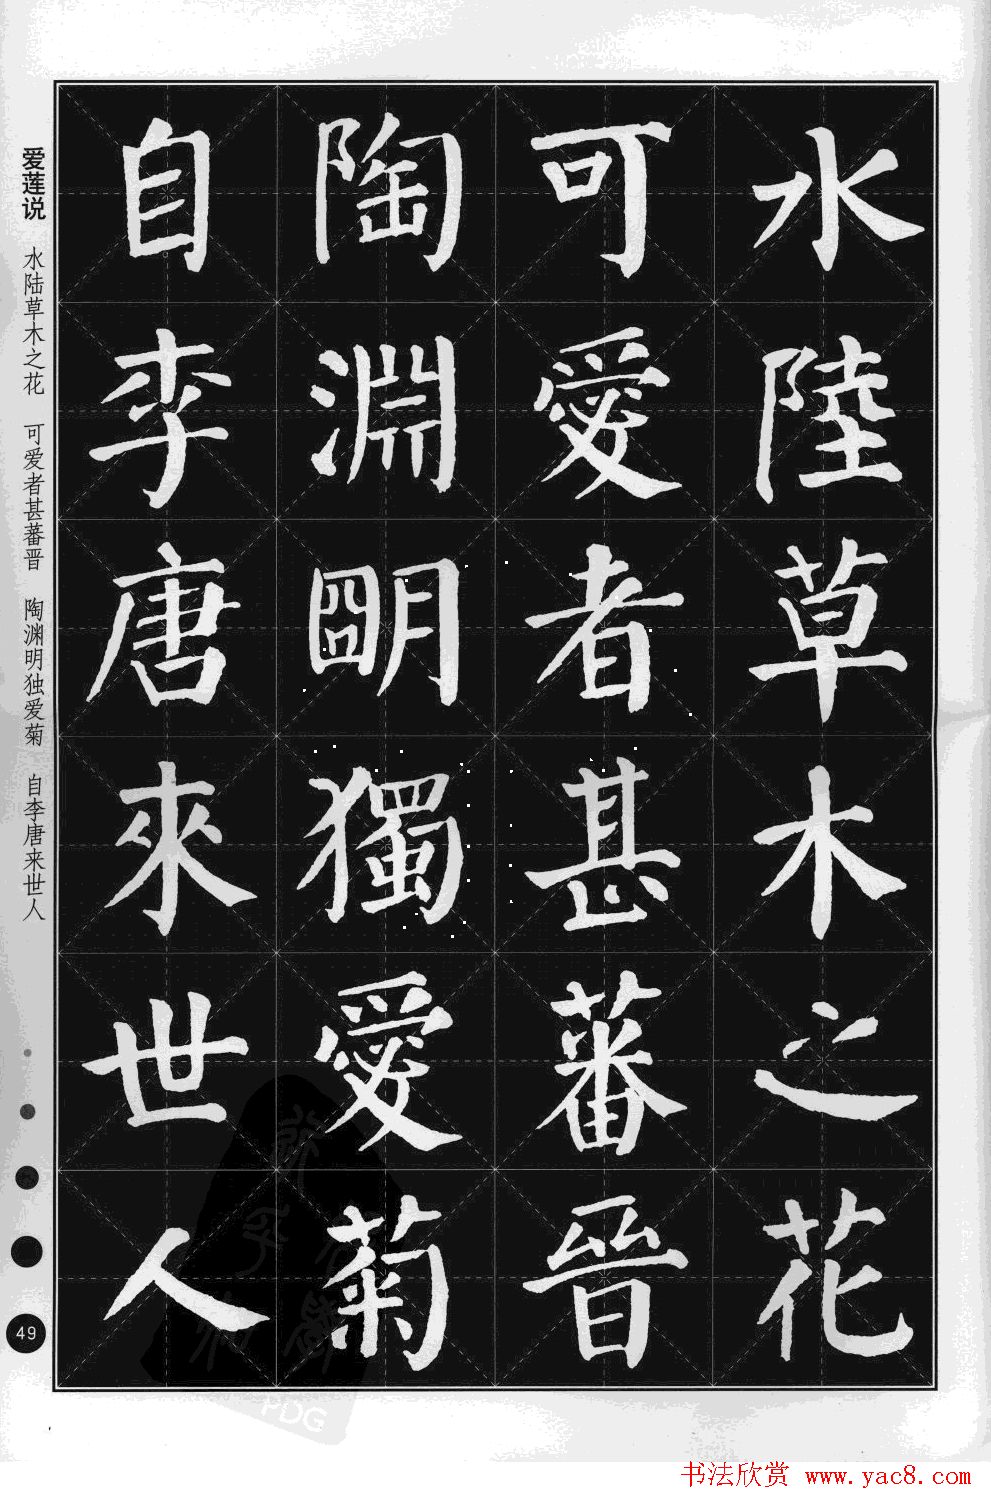 水陸草木之花
可愛者甚蕃晉
陶淵明獨愛菊
自李唐來世人
爱莲说 水陆草木之花 可爱者甚蕃晋 陶渊明独爱菊 自李唐来世人
49
PDG
书法欣赏 www.yac8.com